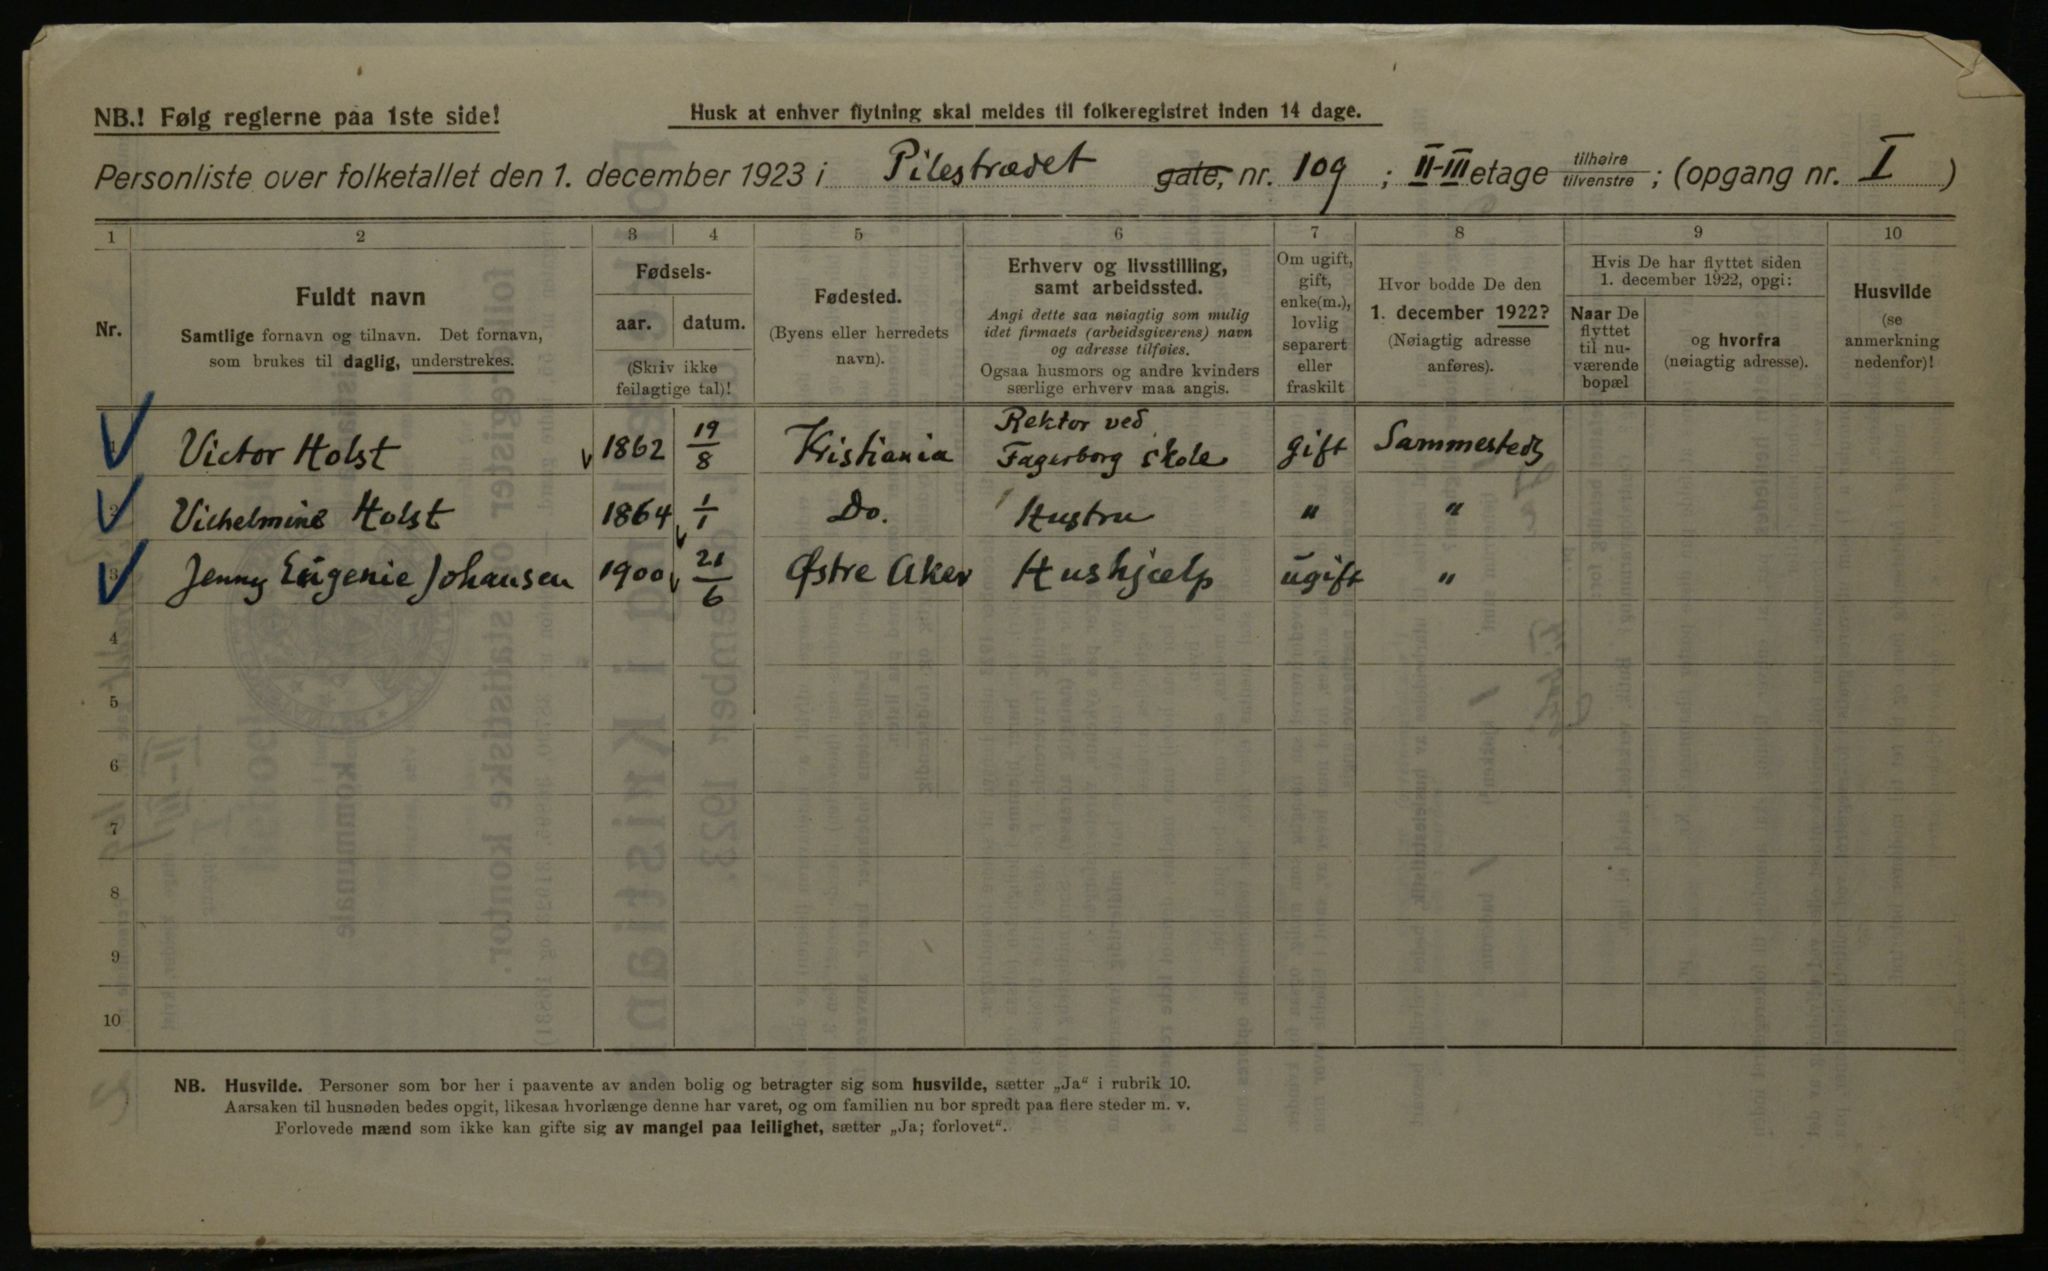 NB.! Følg reglerne paa 1ste side!
Husk at enhver flytning skal meldes til folkeregistret inden 14 dage.
Personliste over folketallet den 1. december 1923 i Pilestrædet gate, nr. 109 ; II-III etage tilhøire tilvenstre ; (opgang nr. I )
1 2 3 4 5 6 7 8 9 10
Nr.
Fuldt navn
Samtlige fornavn og tilnavn. Det fornavn,
som brukes til daglig, understrekes.
Fødsels-
aar. datum.
(Skriv ikke
feilagtige tal)!
Fødested.
(Byens eller herredets
navn).
Erhverv og livsstilling,
samt arbeidssted.
Angi dette saa nøiagtig som mulig
idet firmaets (arbeidsgiverens) navn
og adresse tilføies.
Ogsaa husmors og andre kvinders
særlige erhverv maa angis.
Om ugift,
gift,
enke(m.),
lovlig
separert
eller
fraskilt
Hvor bodde De den
1. december 1922?
(Nøiagtig adresse
anføres).
Hvis De har flyttet siden
1. december 1922, opgi:
Naar De
flyttet
til nu-
værende
bopæl
og hvorfra
(nøiagtig adresse).
Husvilde
(se
anmerkning
nedenfor)!
1 Victor Holst 1862 19/8 Kristiania Rektor ved Fagerborg skole gift Sammesteds
2 Vilhelmine Holst 1864 1/1 Do. Hustru " "
3 Jenny Eugenie Johansen 1900 21/6 Østre Aker Hushjælp ugift "
4
5
6
7
8
9
10
NB. Husvilde. Personer som bor her i paavente av anden bolig og betragter sig som husvilde, sætter „Ja“ i rubrik 10.
Aarsaken til husnøden bedes opgit, likesaa hvorlænge denne har varet, og om familien nu bor spredt paa flere steder m. v.
Forlovede mænd som ikke kan gifte sig av mangel paa leilighet, sætter „Ja; forlovet“.